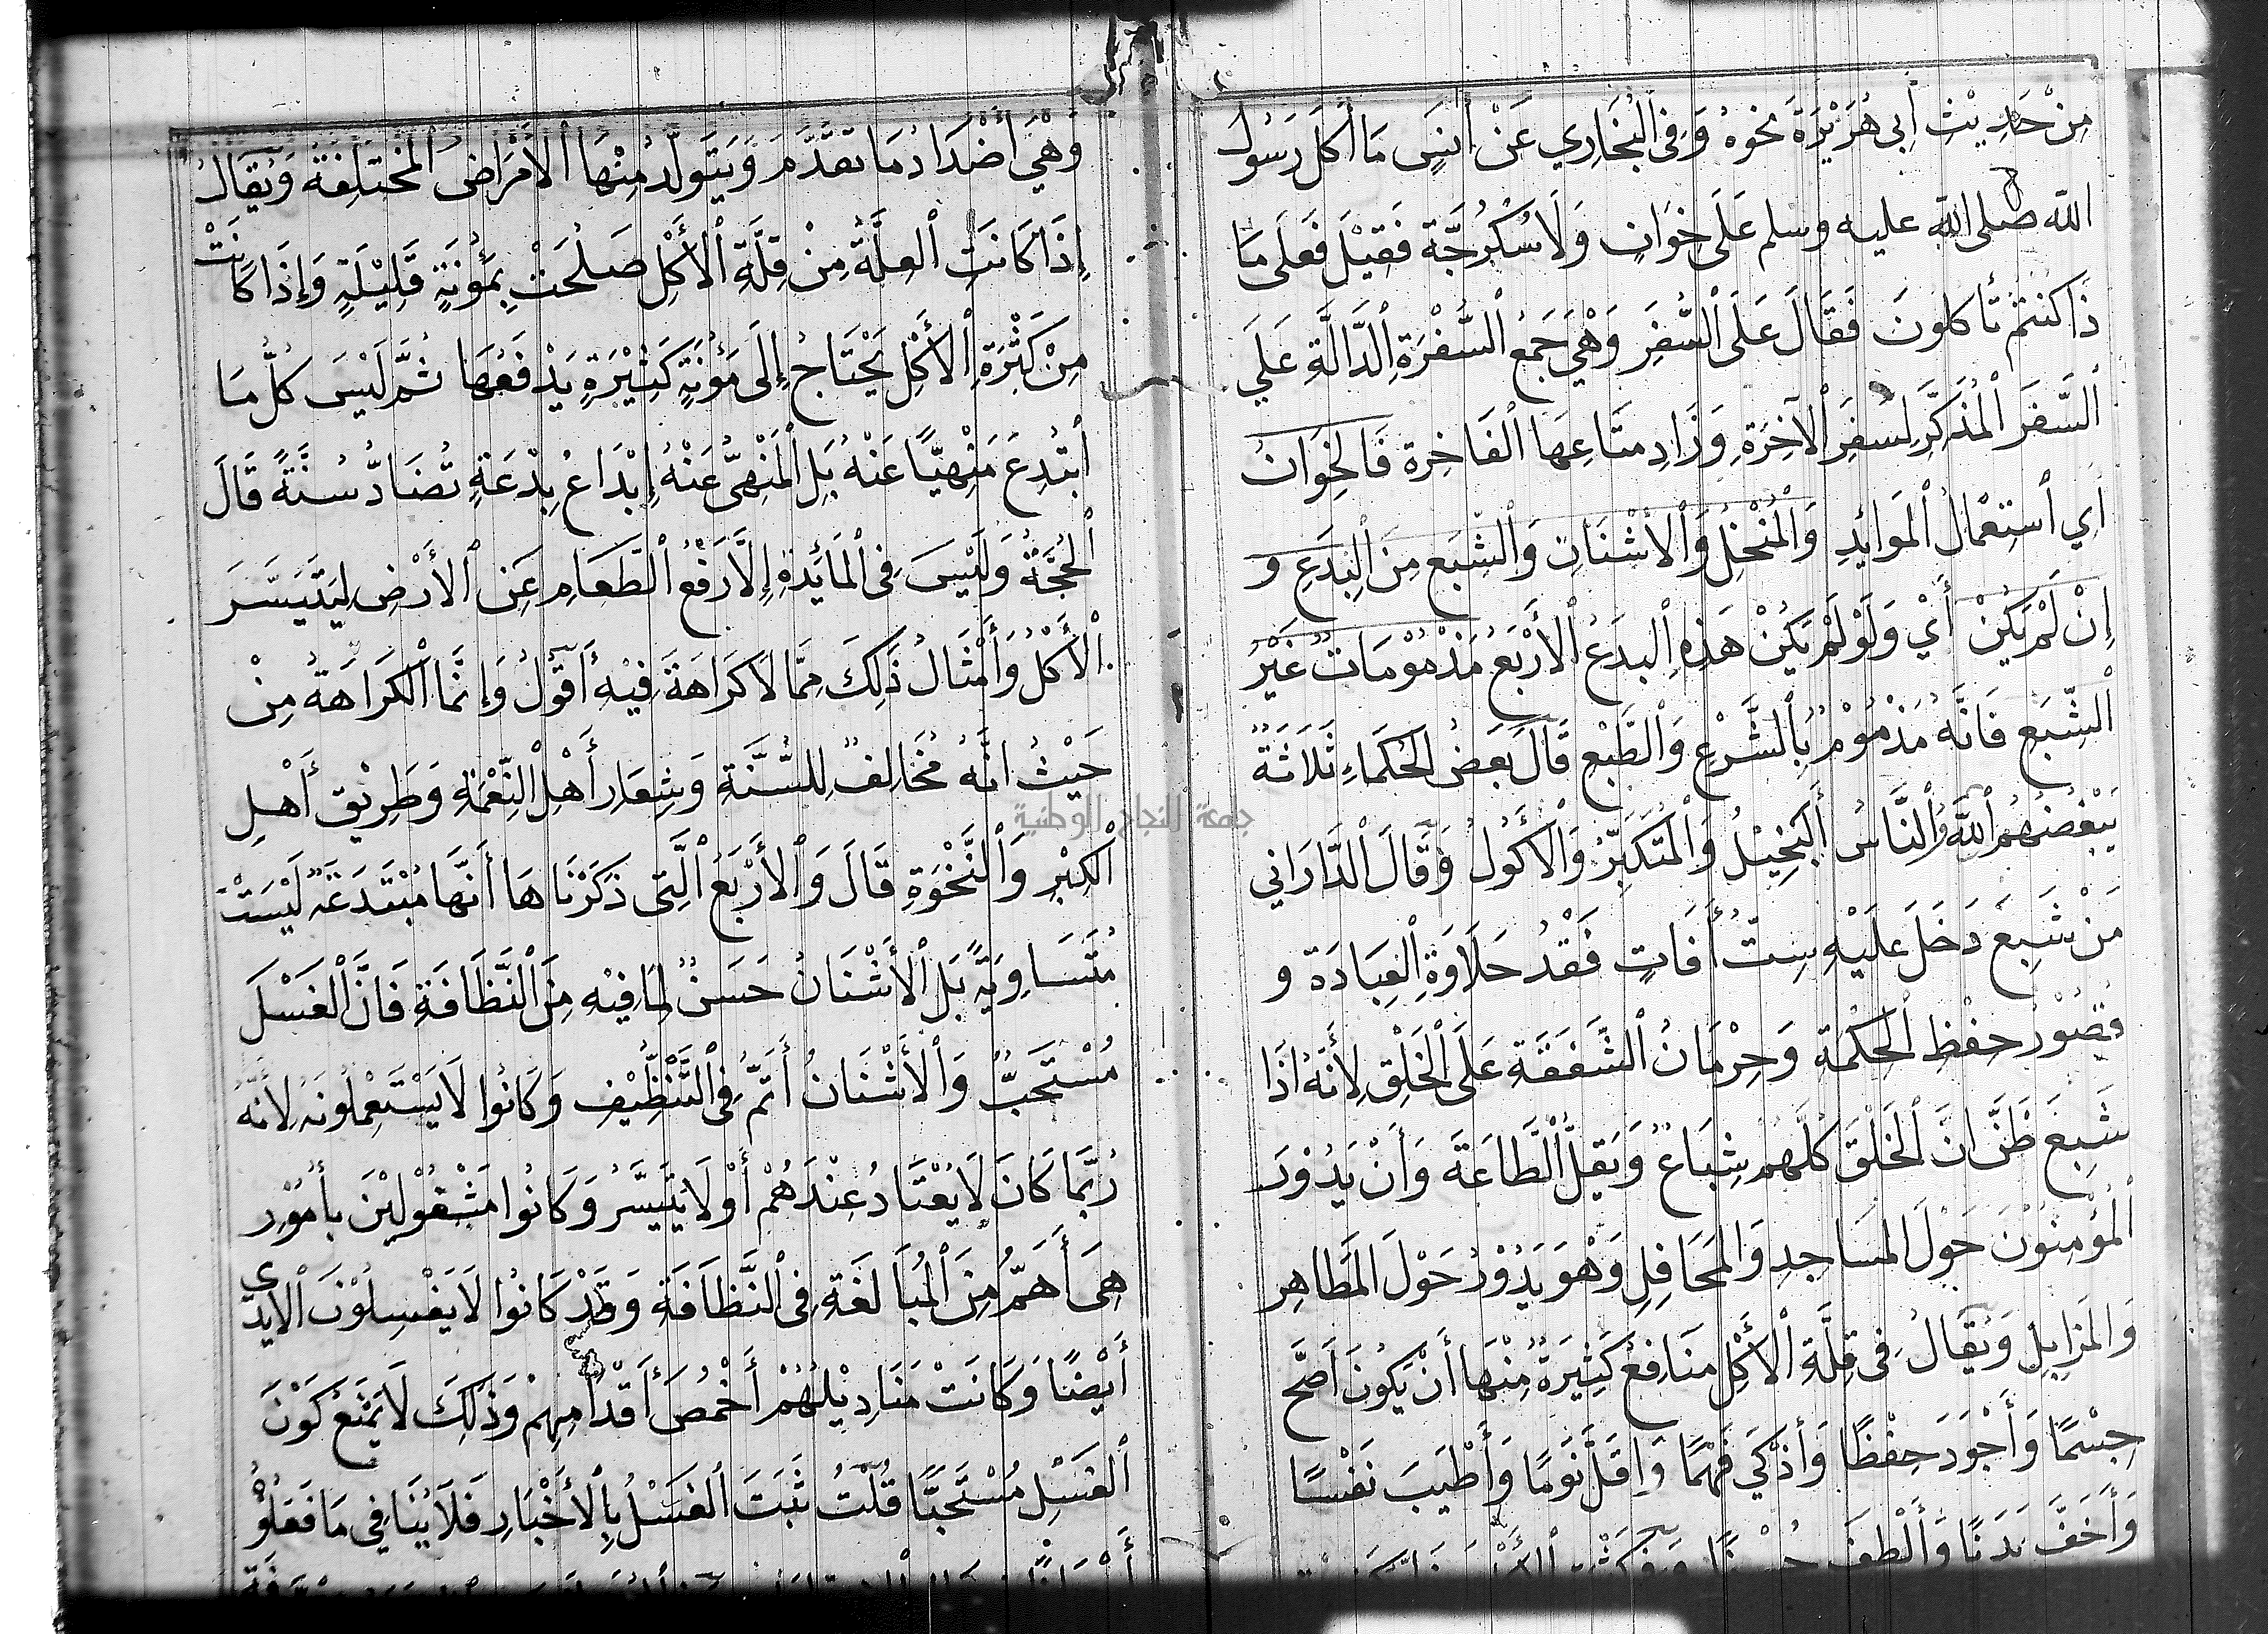 مِنْ حَدِيْثِ أَبِي هُرَيْرَةَ نحوهُ وَفِي الْبُخَارِي عَنْ أَنَسٍ مَا أَكَلَ رَسُولُ
الله صلى الله عليه وسلم عَلَى خِوَانٍ وَلَا سُكْرُجَّة فَقِيْلَ فَعَلَى مَا
ذَا كُنتُمْ تَأكلونَ فَقَالَ عَلَى السُّفَرِ وَهْيَ جَمَعُ السُّفْرَةِ الدَّالَّةِ عَلَي
السَّفَرَ الْمُذَكِّرِ لِسَفَرِ الآخِرَةِ وَزَادِ مَتَاعِهَا الْفَاخِرة فَالْخِوَانُ
أَي اسْتِعْمَالُ الْمَوَايْدِ وَالْمُنْخُلِ وَالْأشْنَانِ وَالشِّبَعِ مِنَ الْبِدَعِ وَ
إِنْ لَمْ يَكُنْ أَيْ وَلَوْ لَمْ يَكُنْ هَذِهِ الْبِدَعُ الْأَرْبَعُ مَذْمُوْمَاتٌ غَيْرُ
الشِّبَعِ فَانَّهُ مَذْمُوْمٌ بِالشَّرْعِ وَالطَّبْعِ قَالَ بَعْضُ الْحُكَمَاءِ ثَلَاثَةٌ
يَبْغضُهُم اللهُ وَالنَّاسُ أَلبَخِيْلُ وَالْمُتَكَبِّرُ وَالْأكُولُ وَقَالَ الدَّارَاني
مَنْ شَبِعَ دَخَلَ عَلَيْهِ سِتُّ أَفَاتٍ فَقْدُ حَلَاوَةِ الْعِبَادَة وَ
قُصُوْرُ حِفْظِ الْحِكْمَةِ وَحِرْمَانُ الشَّفَقَةِ عَلَى الْخَلْقِ لِأَنَّهُ اذَا
شَبِعَ ظَنَّ انَّ الْخَلْقَ كُلَّهُمْ شِبَاعٌ وَيَقِلُّ الطَّاعَة وَأَنْ يَدُوْرَ
الْمُؤْمِنُوْنَ حَوْلَ المَسَاجِدِ وَالمَحَافِلِ وَهْوَ يَدُوْرُ حَوْلَ المَطَاهِر
وَالمَزَابِلِ وَيُقَالُ فِي قِلَّةِ الْأَكْلِ مَنَافِعُ كَثِيْرَةٌ مِنْهَا أَنْ يَكُونَ أَصَحَّ
جِسْمًا وَأَجْوَدَ حِفْظًا وَأَذْكَي فَهْمًا وَاَقَلَّ نَوْمًا وَأَطْيَبَ نَفْسًا
وَأَخَفَّ بَدَنًا وَأَلْطَفَ
وَهْيَ أَضْدَادُ مَا تَقَدَّمَ وَيَتَوَلَّدُ مِنْهَا الْأَمْرَاضُ الْمُخْتَلِفَةُ وَيُقَالُ
إِذَا كَانَتِ الْعِلَّةُ مِنْ قِلَّةِ الْأَكْلِ صَلُحَتْ بِمَؤُنَةٍ قَلِيْلَةٍ وَإِذَا كَانَتْ
مِنْ كَثْرَةِ الْأَكْلِ يَحْتَاجُ إِلَى مَؤُنَةٍ كَثِيْرَةٍ يَدْفَعُهَا ثُمَّ لَيْسَ كُلُّ مَا
ابْتُدِعَ مَنْهِيًّا عَنْهُ بَلِ الْمَنْهِيُّ عَنْهُ إِبْدَاعُ بِدْعَةٍ تُضَادُّ سُنَّةً قَالَ
الْحُجَّةُ وَلَيْسَ فِي الْمَائِدَةِ إِلَّا رَفْعُ الطَّعَامِ عَنِ الْأَرْضِ لِيَتَيَسَّرَ
الْأَكْلُ وَأَمْثَالُ ذَلِكَ مِمَّا لَا كَرَاهَةَ فِيْهِ أَقُوْلُ وَإِنَّمَا الْكَرَاهَةُ مِنْ
حَيْثُ انَّهُ مُخَالِفٌ لِلسُّنَّةِ وَشِعَارِ أَهْلِ النِّعْمَةِ وَطَرِيْقِ أَهْلِ
الْكِبْرِ وَالنَّخْوَةِ قَالَ وَالْأَرْبَعُ الَّتِي ذَكَرْنَاهَا أَنَّهَا مُبْتَدَعَةٌ لَيْسَتْ
مُتَسَاوِيَةً بَلِ الْأَشْنَانُ حَسَنٌ لِمَا فِيْهِ مِنَ النَّظَافَةِ فَانَّ الْغَسْلَ
مُسْتَحَبٌّ وَالْأَشْنَانُ أَتَمُّ فِي التَّنْظِيْفِ وَكَانُوا لَا يَسْتَعْمِلُونَهُ لِأَنَّهُ
رُبَّمَا كَانَ لَا يُعْتَادُ عِنْدَهُمْ أَوْ لَا يَتَيَسَّرُ وَكَانُوا مَشْغُوْلِيْنَ بِأُمُوْرٍ
هِيَ أَهَمُّ مِنَ الْمُبَالَغَةِ فِي النَّظَافَةِ وَقَدْ كَانُوا لَا يَغْسِلُوْنَ الْأَيْدِي
أَيْضًا وَكَانَتْ مَنَادِيْلُهُمْ أَخْمُصَ أَقْدَامِهِمْ وَذَلِكَ لَا يَمْنَعُ كَوْنَ
الْغَسْلِ مُسْتَحَبًّا قُلْتُ ثَبَتَ الْغَسْلُ بِالْأَخْبَارِ فَلَا يُنَافِي مَا فَعَلُوْهُ